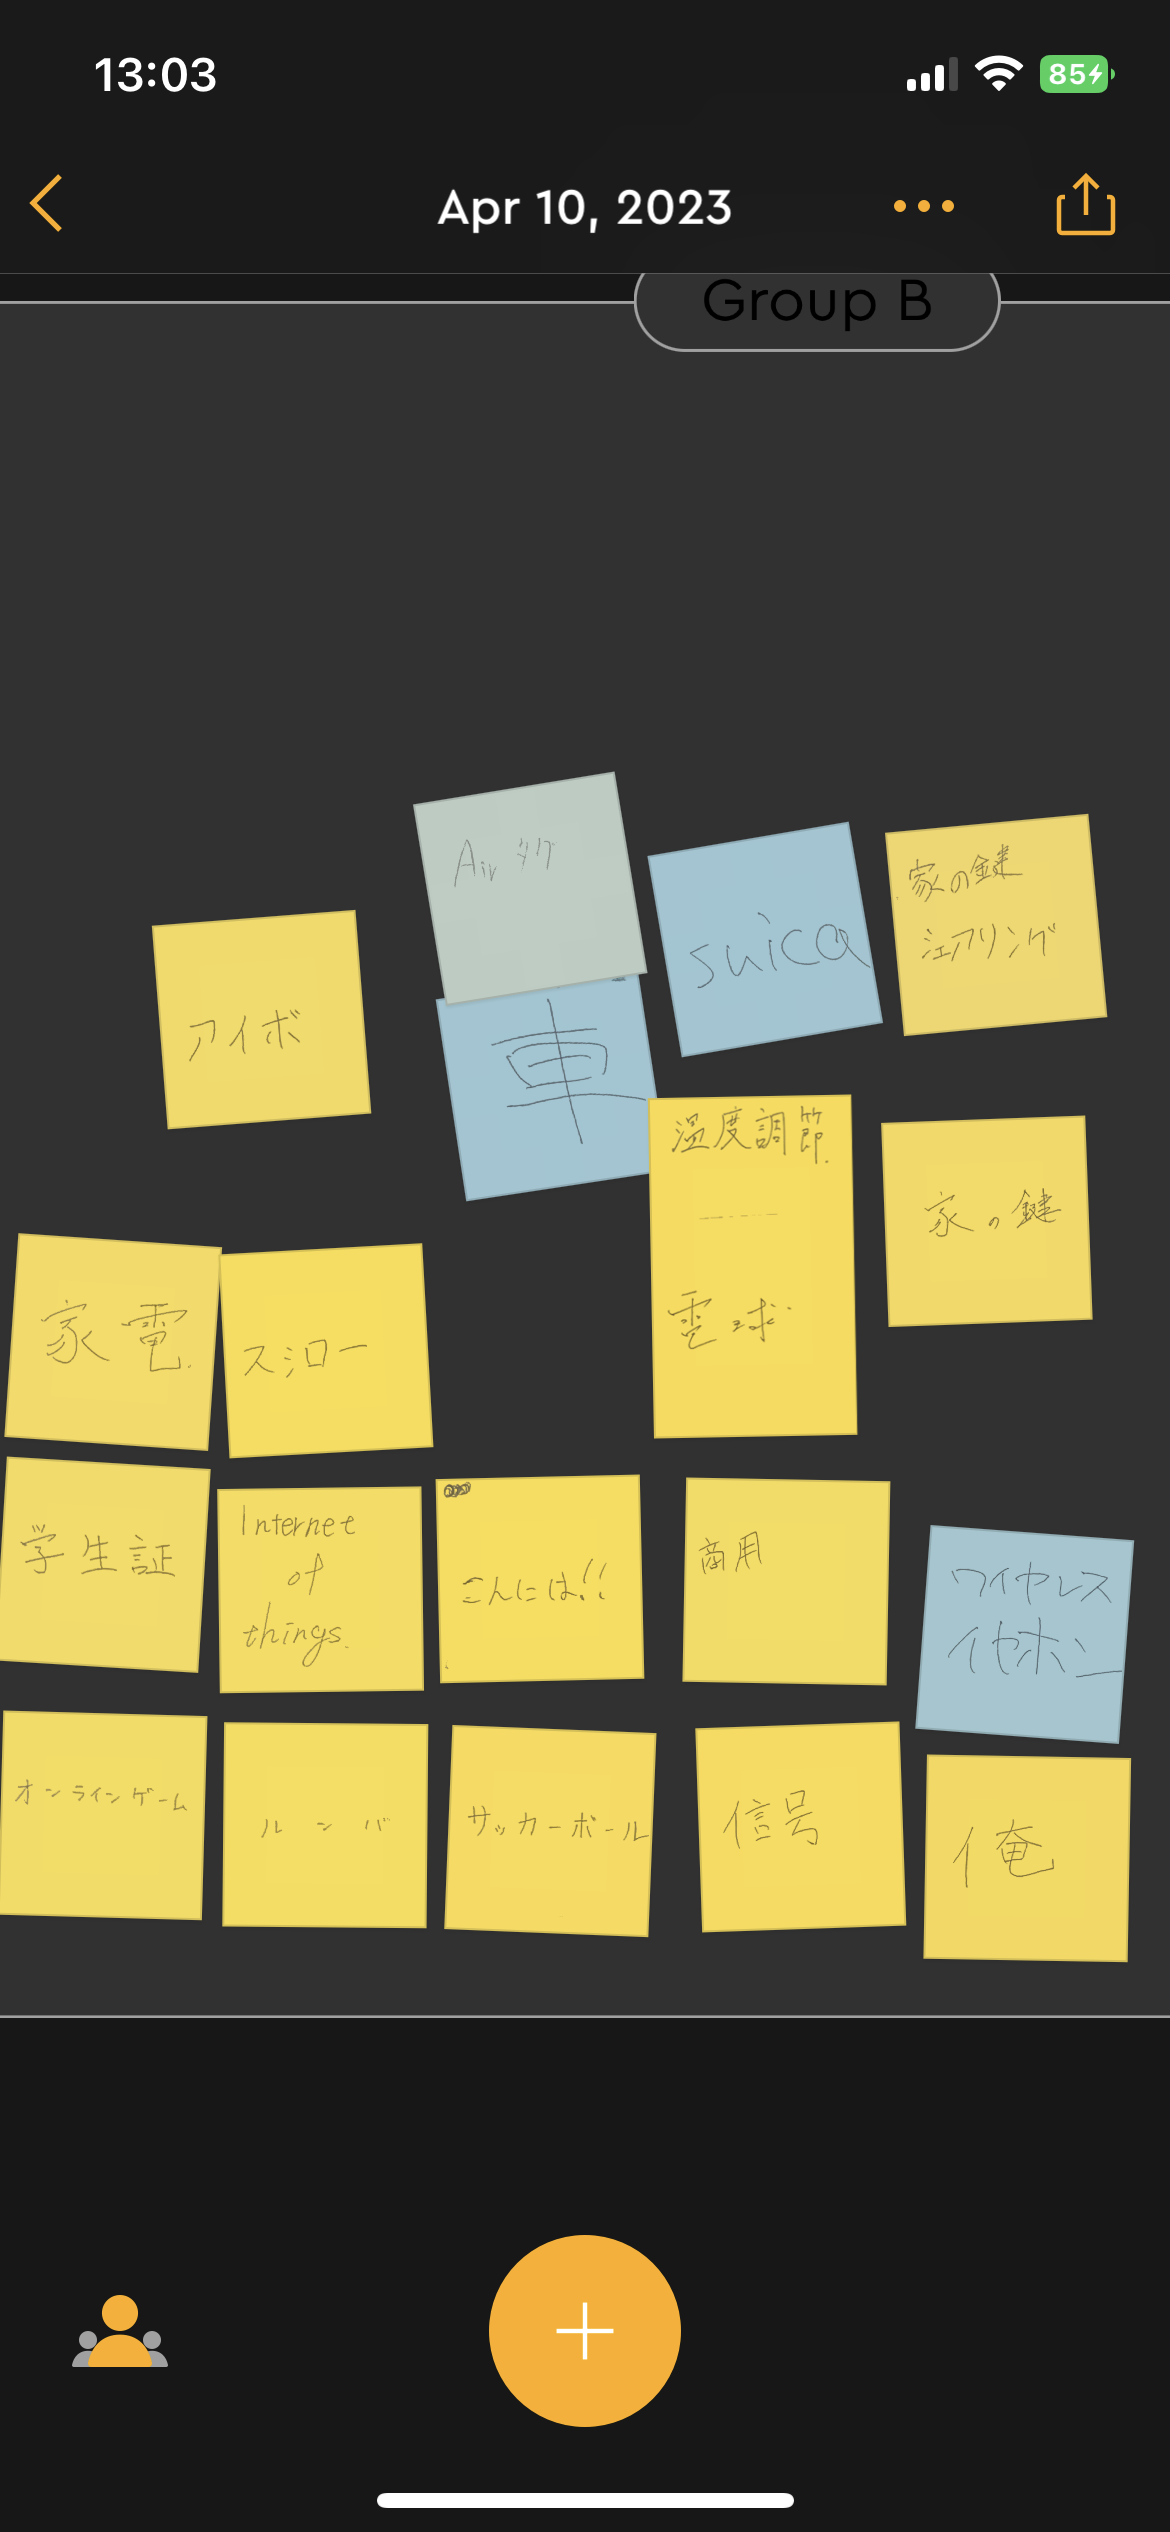 13:03
85
Apr 10, 2023
Group B
Air タグ
suica
家の鍵
シェアリング
アイボ
車
温度調節
電球
家の鍵
家電
スシロー
学生証
Internet
of
things.
こんには!!
商用
ワイヤレス
イヤホン
オンラインゲーム
ルンバ
サッカーボール
信号
俺